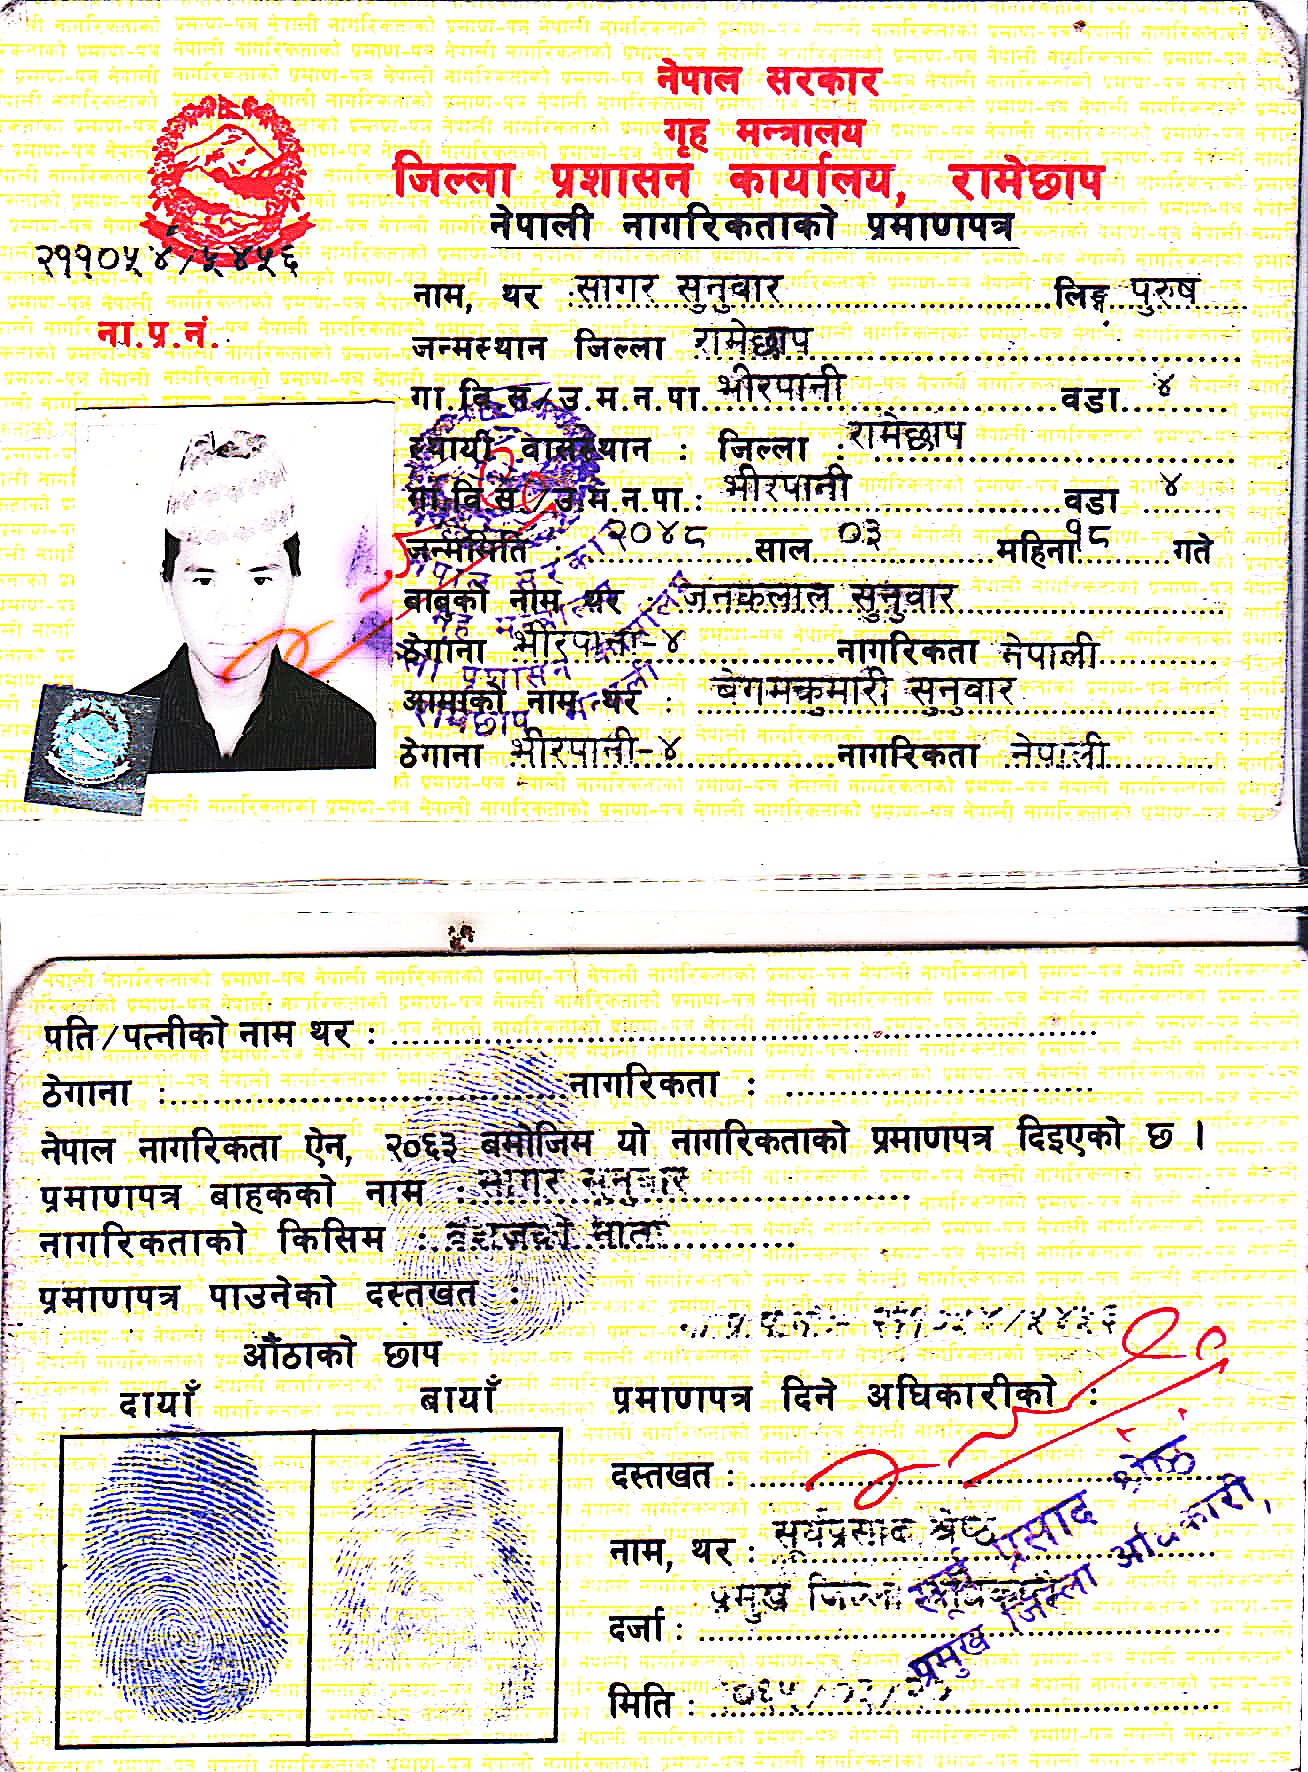 नेपाल सरकार
गृह मन्त्रालय
जिल्ला प्रशासन कार्यालय, रामेछाप
नेपाली नागरिकताको प्रमाणपत्र
२११०५४/५४५६
ना.प्र.नं.
नाम, थर : सागर सुनुवार लिङ्ग पुरुष
जन्मस्थान जिल्ला रामेछाप
गा.वि.स./उ.म.न.पा. भीरपानी वडा ४
स्थायी वासस्थान : जिल्ला : रामेछाप
गा.वि.स./उ.म.न.पा.: भीरपानी वडा ४
जन्ममिति : २०४८ साल ०३ महिना १८ गते
बाबुको नाम थर : जनकलाल सुनुवार
ठेगाना भीरपानी-४ नागरिकता नेपाली
आमाको नाम थर : बेगमकुमारी सुनुवार
ठेगाना भीरपानी-४ नागरिकता नेपाली
पति/पत्नीको नाम थर :
ठेगाना : नागरिकता :
नेपाल नागरिकता ऐन, २०६३ बमोजिम यो नागरिकताको प्रमाणपत्र दिइएको छ ।
प्रमाणपत्र बाहकको नाम : सागर सुनुवार
नागरिकताको किसिम : वंशजको नाता
प्रमाणपत्र पाउनेको दस्तखत :
औंठाको छाप
दायाँ बायाँ
प्रमाणपत्र दिने अधिकारीको :
दस्तखत :
नाम, थर : सूर्यप्रसाद श्रेष्ठ
दर्जा : प्रमुख जिल्ला
सूर्य प्रसाद श्रेष्ठ
प्रमुख जिल्ला अधिकारी
मिति :